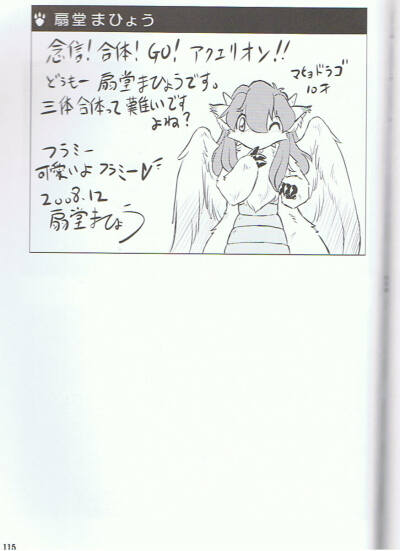 扇堂まひょう
念信！合体！GO！アクエリオン！！
どぅもー 扇堂まひょうです。
三体合体って難いです
よね？
マヒョドラゴ
10才
フラミー
可愛いよフラミー
2008.12
扇堂まひょう
115